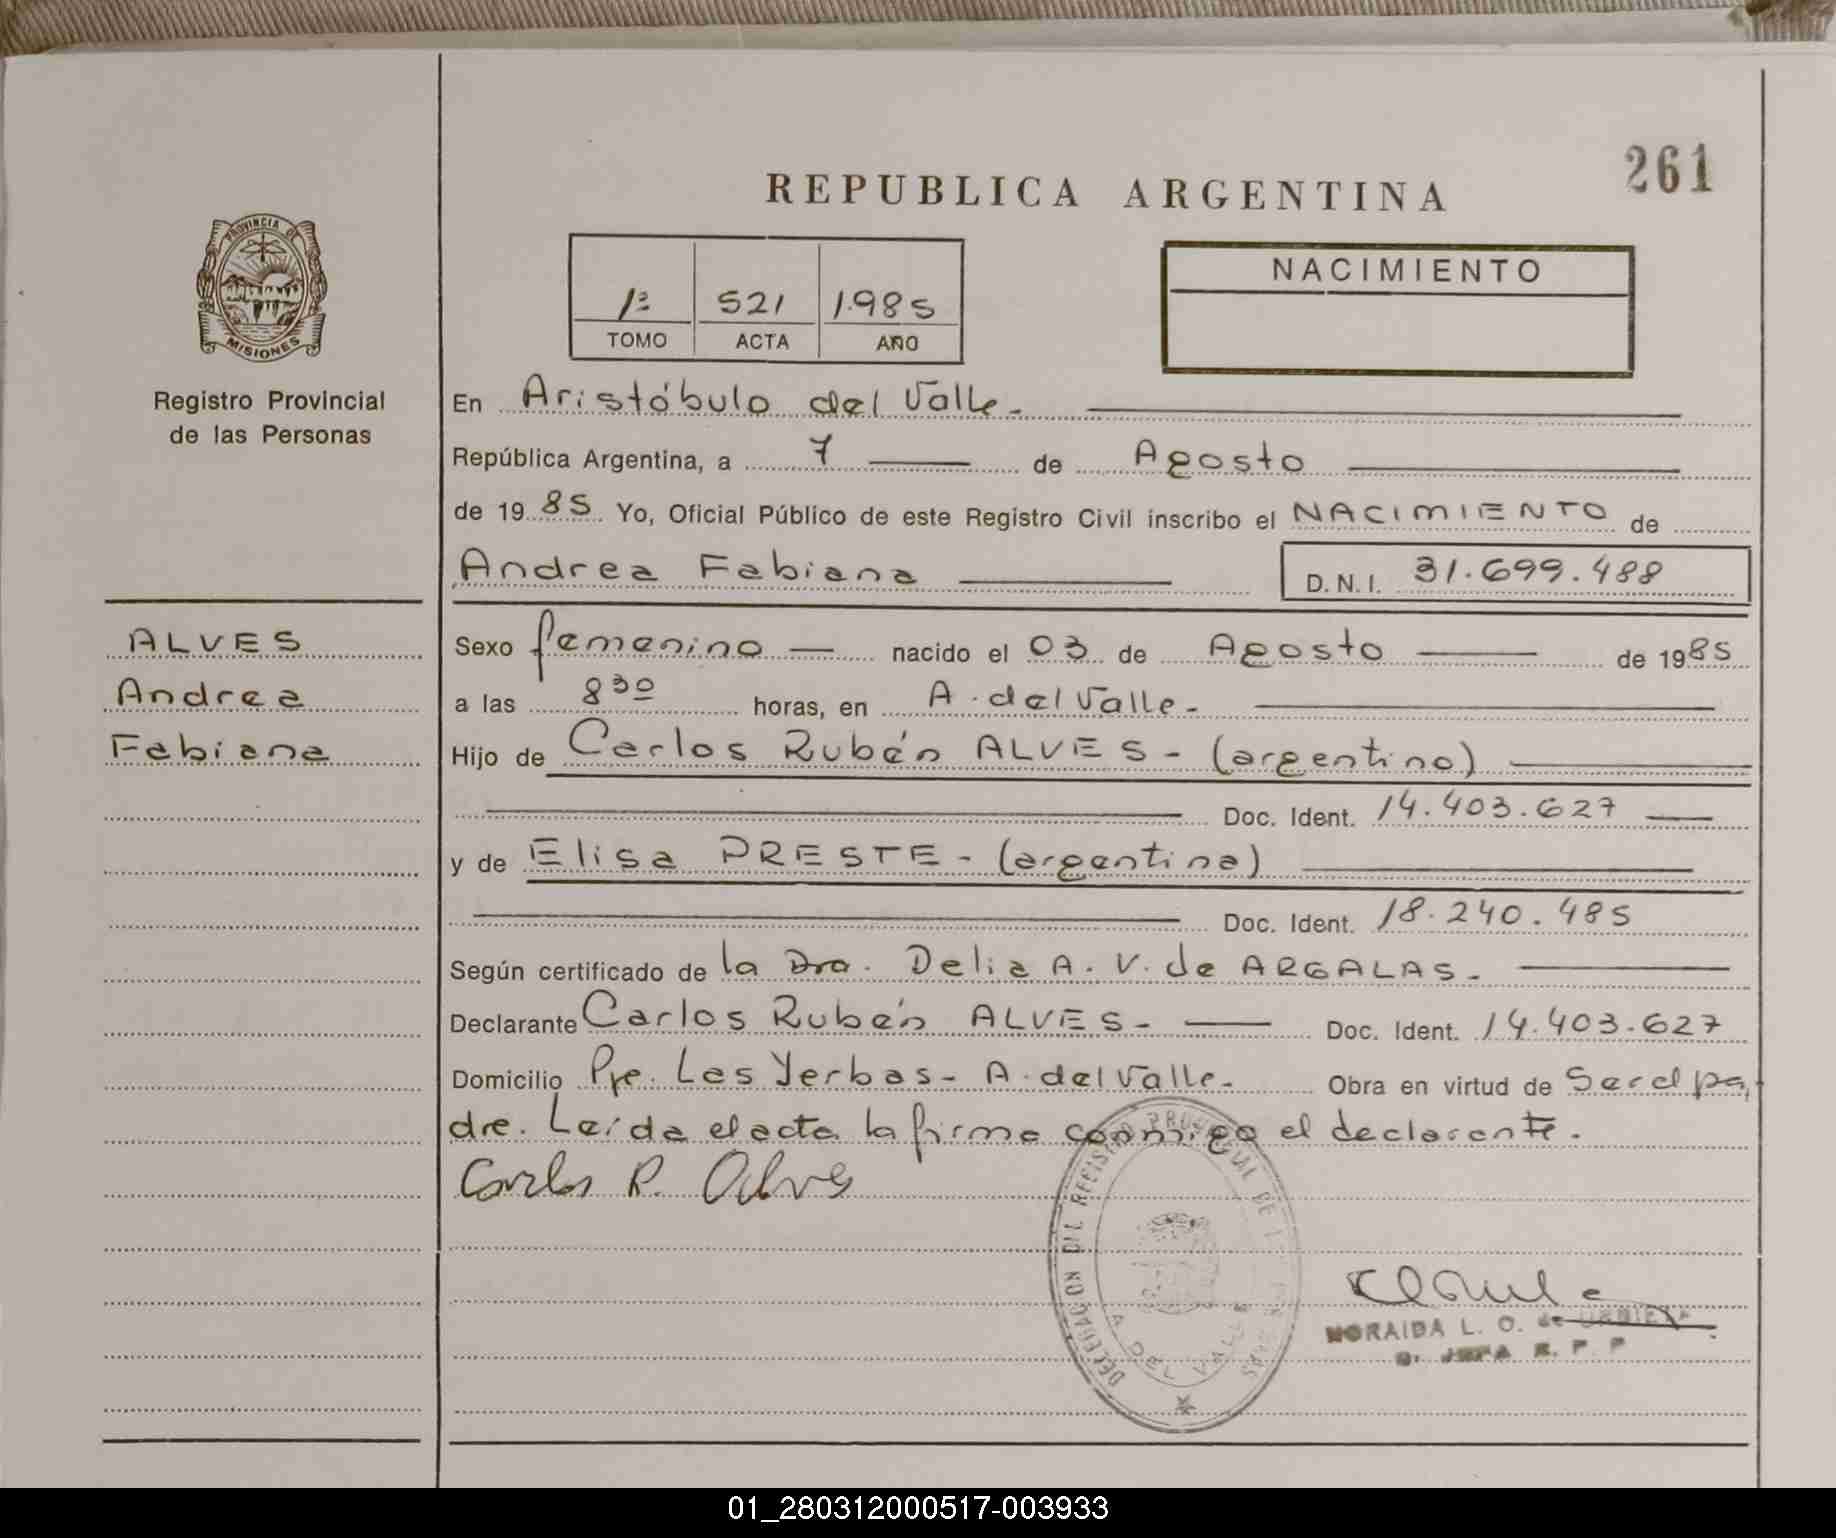 261
REPUBLICA ARGENTINA
PROVINCIA DE
MISIONES
Registro Provincial
de las Personas
1º 521 1.985
TOMO ACTA AÑO
NACIMIENTO
En Aristóbulo del Valle.
República Argentina, a 7 de Agosto
de 1985 Yo, Oficial Público de este Registro Civil inscribo el NACIMIENTO de
Andrea Fabiana D.N.I. 31.699.488
ALVES
Andrea
Fabiana
Sexo femenino nacido el 03 de Agosto de 1985
a las 8 30 horas, en A. del Valle.
Hijo de Carlos Rubén ALVES - (argentino)
Doc. Ident. 14.403.627
y de Elisa PRESTE - (argentina)
Doc. Ident. 18.240.485
Según certificado de la Dra. Delia A. V. de ARGALAS.
Declarante Carlos Rubén ALVES - Doc. Ident. 14.403.627
Domicilio Pje. Las Yerbas - A. del Valle. Obra en virtud de Ser el pa
dre. Leída el acta la firma conmigo el declarante.
Carlos R. Alves
DELEGACION DEL REGISTRO PROVINCIAL DE
A DEL VALLE
NORAIDA L. O. de
JEFA R. P. P
01_280312000517-003933